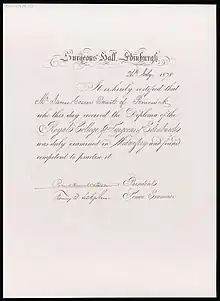 Surgeons Hall, Edinburgh
26th July, 1878
It is hereby certified that
Mr James Cowan of
who this day received the Diploma of the
Royal College of Surgeons, Edinburgh
was duly examined in Midwifery and found
competent to practise it.
President